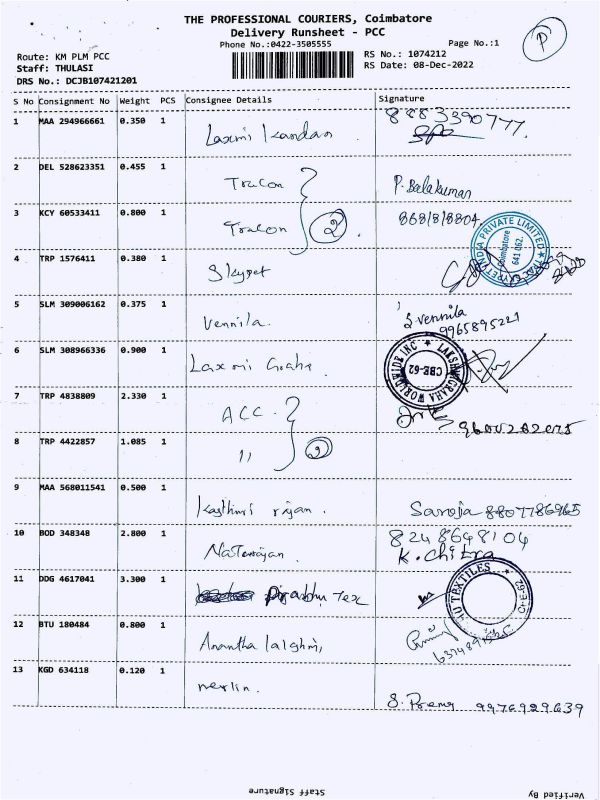 THE PROFESSIONAL COURIERS, Coimbatore
Delivery Runsheet - PCC
Phone No.:0422-3505555
Page No.:1
P
Route: KM PLM PCC
Staff: THULASI
DRS No.: DCJB107421201
RS No.: 1074212
RS Date: 08-Dec-2022
S No Consignment No Weight PCS Consignee Details Signature
1 MAA 294966661 0.350 1 Laxmi Kandan
2 DEL 528623351 0.455 1 Tracon P. Balakumar
3 KCY 60533411 0.800 1 Tracon 2
INDIA PRIVATE LIMITED
Coimbatore
641 062.
4 TRP 1576411 0.380 1 Skypet
5 SLM 309006162 0.375 1 Vennila. S. Vennila
9965895221
6 SLM 308966336 0.900 1 Laxmi Graha
LAKSHMIGRAHA WORLDWIDE INC
CBE-62
7 TRP 4838809 2.330 1 ACC 2
8 TRP 4422857 1.085 1 11
9 MAA 568011541 0.500 1 Saroja 8807786965
10 BOD 348348 2.800 1 Natarajan. 8248648104
K. Chitra
11 DDG 4617041 3.300 1 Prabhu Tex
TEXTILES
CBE-62
12 BTU 180484 0.800 1 Anantha lalghmi,
13 KGD 634118 0.120 1 merlin. S. Prema 9976929639
Staff Signature
Verified By